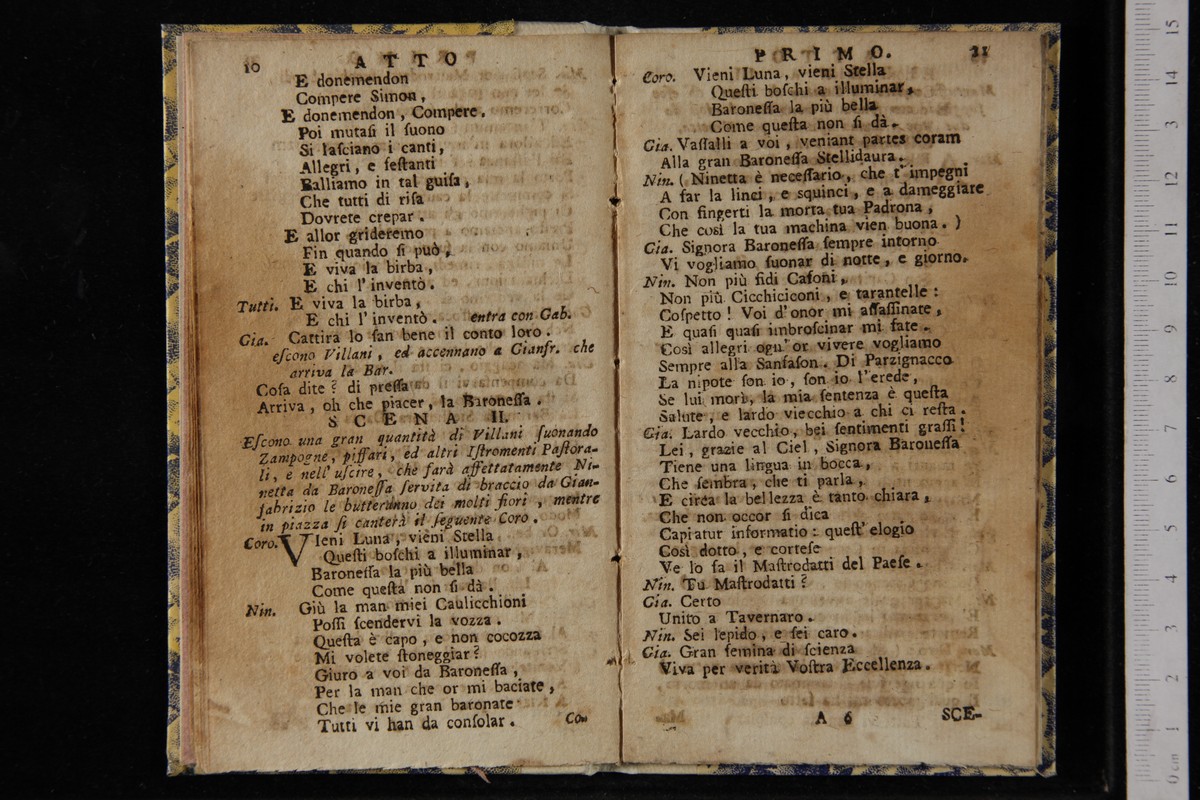 10
A T T O
E donemendon
Compere Simon,
E donemendon, Compere.
Poi mutaſi il ſuono
Si laſciano i canti,
Allegri, e feſtanti
Balliamo in tal guiſa,
Che tutti di riſa
Dovrete crepar.
E allor grideremo
Fin quando ſi può,
E viva la birba,
E chi l'inventò.
Tutti. E viva la birba,
E chi l'inventò. entra con Gab.
Gia. Cattira lo ſan bene il conto loro.
eſcono Villani, ed accennano a Gianfr. che
arriva la Bar.
Coſa dite? di preſſa
Arriva, oh che piacer, la Baroneſſa.
S C E N A II.
Eſcono una gran quantità di Villani ſuonando
Zampogne, piffari, ed altri Iſtromenti Paſtora-
li, e nell' uſcire, che farà affettatamente Ni-
netta da Baroneſſa ſervita di braccio da Gian-
fabrizio le butteranno dei molti fiori, mentre
in piazza ſi canterà il ſeguente Coro.
Coro. VIeni Luna, vieni Stella
Queſti boſchi a illuminar,
Baroneſſa la più bella
Come queſta non ſi dà.
Nin. Giù la man miei Caulicchioni
Poſſi ſcendervi la vozza.
Queſta è capo, e non cocozza
Mi volete ſtoneggiar?
Giuro a voi da Baroneſſa,
Per la man che or mi baciate,
Che le mie gran baronate
Tutti vi han da conſolar.
Co-
P R I M O.
11
Coro. Vieni Luna, vieni Stella
Queſti boſchi a illuminar,
Baroneſſa la più bella
Come queſta non ſi dà.
Gia. Vaſſalli a voi, veniant partes coram
Alla gran Baroneſſa Stellidaura.
Nin. (Ninetta è neceſſario, che t'impegni
A far la linci, e squinci, e a dameggiare
Con fingerti la morta tua Padrona,
Che così la tua machina vien buona.)
Gia. Signora Baroneſſa ſempre intorno
Vi vogliamo ſuonar di notte, e giorno.
Nin. Non più fidi Cafoni,
Non più Cicchiciconi, e tarantelle:
Coſpetto! Voi d'onor mi aſſaſſinate,
E quaſi quaſi imbroſcinar mi fate.
Così allegri ogn'or vivere vogliamo
Sempre alla Sanfaſon. Di Parzignacco
La nipote ſon io, ſon io l'erede,
Se lui morì, la mia ſentenza è queſta
Salute, e lardo viecchio a chi ci reſta.
Gia. Lardo vecchio, bei ſentimenti graſſi!
Lei, grazie al Ciel, Signora Baroneſſa
Tiene una lingua in bocca,
Che ſembra, che ti parla,
E circa la bellezza è tanto chiara,
Che non occor ſi dica
Capiatur informatio: queſt' elogio
Così dotto, e corteſe
Ve lo fa il Maſtrodatti del Paeſe.
Nin. Tu Maſtrodatti?
Gia. Certo
Unito a Tavernaro.
Nin. Sei lepido, e ſei caro.
Gia. Gran femina di ſcienza
Viva per verità Voſtra Eccellenza.
A 6
SCE-
15
14
3
12
11
10
9
8
7
6
5
4
3
2
1
0 cm